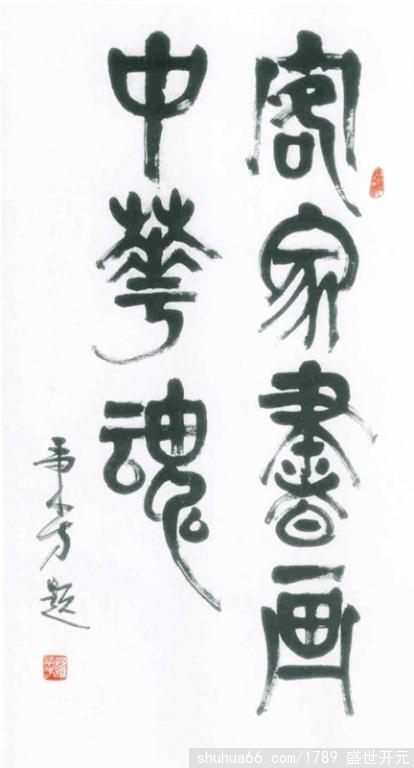 客家書画
中華魂
题
shuhua66.com/1789 盛世开元